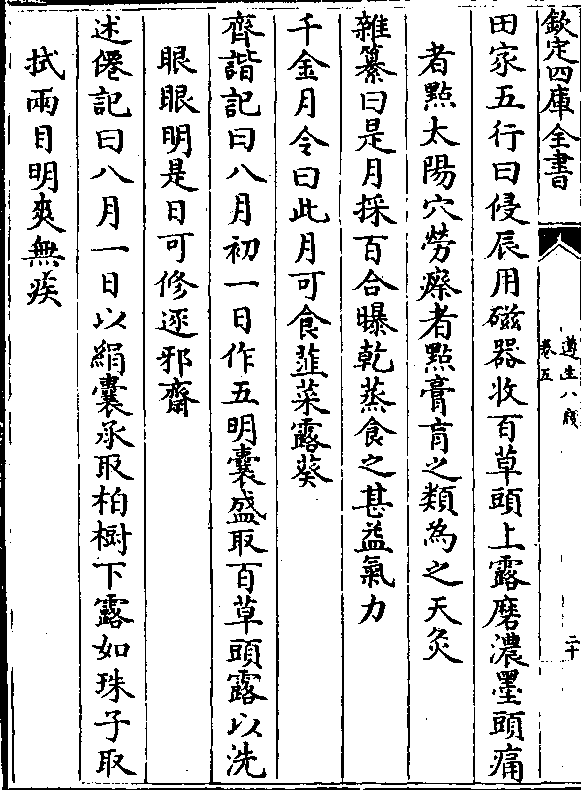 欽定四庫全書
遵生八牋
卷五
二十
田家五行曰侵辰用磁器收百草頭上露磨濃墨頭痛
者點太陽穴勞瘵者點膏肓之類為之天灸
雜纂曰是月採百合曝乾蒸食之甚益氣力
千金月令曰此月可食韮菜露葵
齊諧記曰八月初一日作五明囊盛取百草頭露以洗
眼眼明是日可修逐邪齋
述僊記曰八月一日以絹囊承取柏樹下露如珠子取
拭兩目明爽無疾